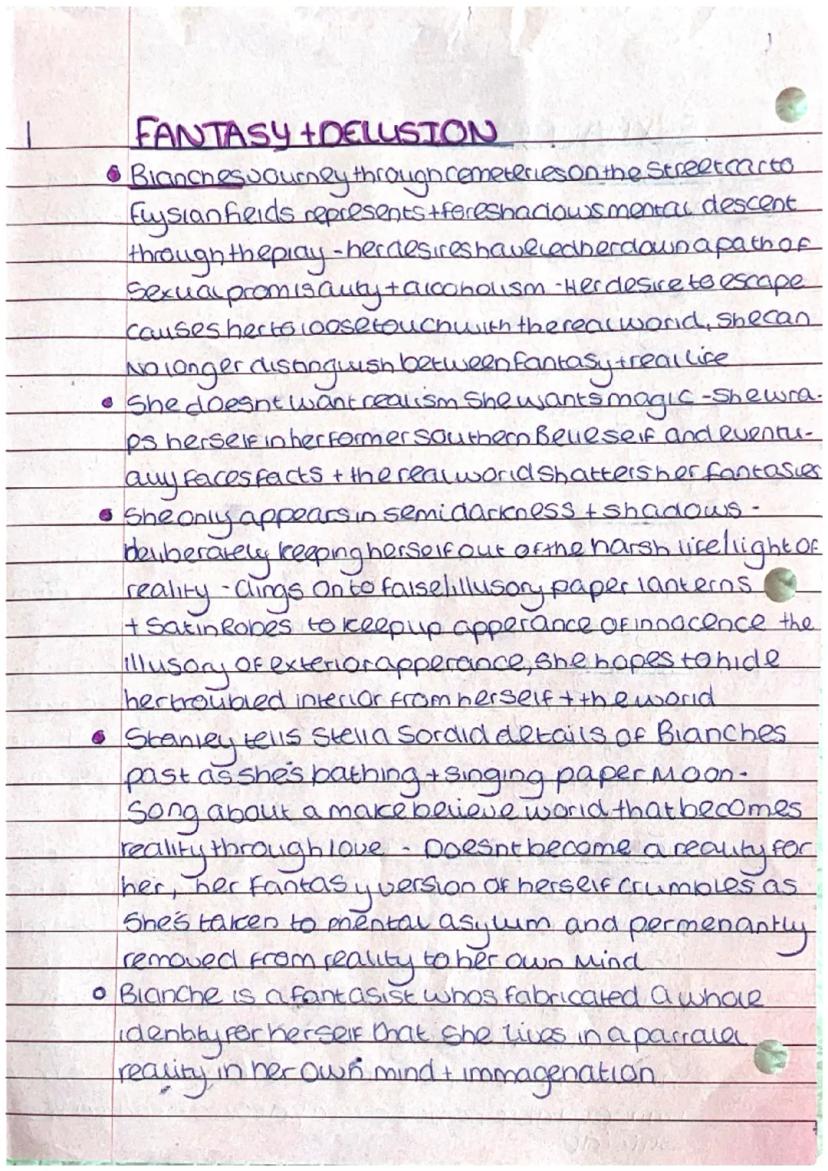 1
1
FANTASY + DELUSION
Blanches journey through cemeteries on the Streetcar to
Elysian fields represents + foreshadows mental descent
through the play - her desires have led her down a path of
Sexual promiscuity + alcoholism - Her desire to escape
causes her to loose touch with the real world, she can
No longer distinguish between fantasy + real life
She doesnt want realism She wants magic - She wra-
ps herself in her former Southern Belle self and eventu-
ally faces facts + the real world shatters her fantasies
She only appears in semi darkness + shadows -
deliberately keeping herself out of the harsh life/light of
reality - Clings onto false/illusory paper lanterns
+ Satin Robes to keep up apperance of innocence the
illusory of exterior apperance, she hopes to hide
her troubled interior from herself + the world
Stanley tells Stella Sordid details of Blanches
past as she's bathing + singing paper Moon -
Song about a make believe world that becomes
reality through love - Doesnt become a reality for
her, her fantasy version of herself crumbles as
She's taken to mental asylum and permenantly
removed from reality to her own Mind
Blanche is a fantasist whos fabricated a whole
identity for herself that she lives in a parralel
reality in her own mind + immagenation